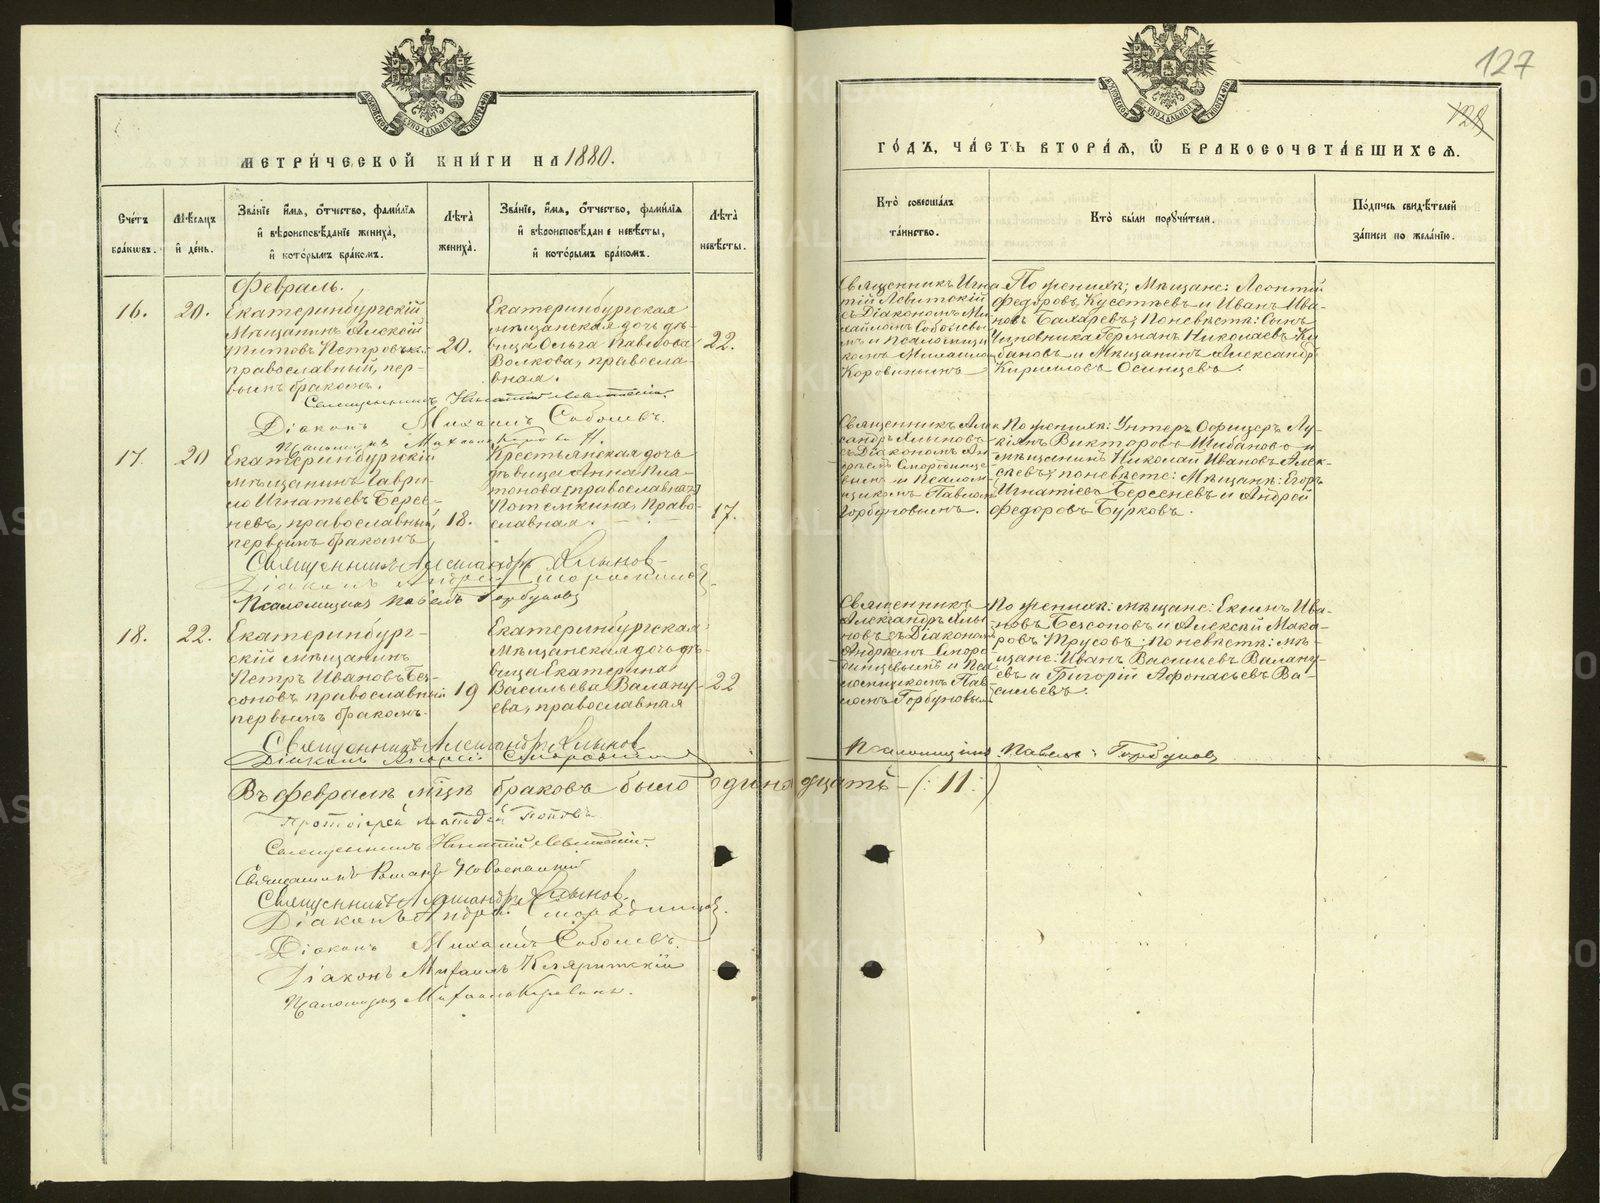 127
128
МЕТРИ́ЧЕСКОЙ КНИ́ГИ НА 1880.
ГО́ДЪ, ЧА́СТЬ ВТОРА́Я, Ѡ БРАКОСОЧЕТА́ВШИХСЯ.
Сче́тъ бра́кѡвъ.
Мѣ́сяцъ и҆ де́нь.
Зва́нїе и҆́мя, ѻ҆́тчество, фами́лїя и҆ вѣроисповѣ́данїе жениха̀, и҆ кото́рымъ бра́комъ.
Лѣ́та жениха̀.
Зва́нїе, и҆́мя, ѻ҆́тчество, фами́лїя и҆ вѣроисповѣ́данїе невѣ́сты, и҆ кото́рымъ бра́комъ.
Лѣ́та невѣ́сты.
Кто̀ соверша́лъ та́инство.
Кто̀ бы́ли поручи́тели.
По́дпись свидѣ́телей за́писи по жела́нїю.
Февраль.
16.
20.
Екатеринбургскій
Мѣщанинъ Алексѣй
Титовъ Петровъ
православный, пер-
вымъ бракомъ.
20.
Екатеринбургская
мѣщанская дочь дѣ-
вица Ольга Павлова
Волкова, правосла-
вная.
22.
Священникъ Игна
тій Левитскій
съ Діакономъ Ми
хаиломъ Соболевы
мъ и Псаломщи
комъ Михаило
Коровинымъ
По женихѣ; Мѣщане: Леонтій
Федоровъ Кусетьевъ и Иванъ Ива-
новъ Бахаревъ; По невѣстѣ: Сынъ
Чиновника Германъ Николаевъ Ку
бановъ и Мѣщанинъ Александръ
Кирилловъ Осинцевъ.
Священникъ Игнатій Левитскій.
Діаконъ Михаилъ Соболевъ.
Псаломщикъ Михаилъ Коровинъ
17.
20
Екатеринбургскій
мѣщанинъ Гаври-
ло Игнатьевъ Берсе-
невъ, православный,
первымъ бракомъ
18.
Крестьянская дочь
дѣвица Анна Пла-
тонова [православная]
Потемкина, Право-
славная.
17.
Священникъ Алек
сандръ Хлыновъ
съ Діакономъ Ан
дреемъ Смородинце
вымъ и Псалом-
щикомъ Павломъ
Горбуновымъ.
По женихѣ: Унтеръ Офицеръ Лу-
кіянъ Викторовъ Шибаново и
мѣщанинъ Николай Ивановъ Алек-
сѣевъ; по невѣстѣ: Мѣщане: Егоръ
Игнатіевъ Берсеневъ и Андрей
Федоровъ Бурковъ.
Священникъ Александръ Хлыновъ
Діаконъ Андрей Смородинцовъ
Псаломщикъ Павелъ Горбуновъ
18.
22.
Екатеринбург-
скій мѣщанинъ
Петръ Ивановъ Без-
соновъ православный
первымъ бракомъ.
19
Екатеринбургская
Мѣщанская дочь дѣ-
вица Екатерина
Васильева Валану-
ева, православная
22
Священникъ
Александръ Хлы-
новъ съ Діакономъ
Андреемъ Сморо
динцевымъ и Пса
ломщикомъ Пав-
ломъ Горбуновым
По женихѣ: мѣщане: Екимъ Ива-
новъ Безсоновъ и Алексѣй Мака-
ровъ Трусовъ; По невѣстѣ: мѣ-
щане: Иванъ Васильевъ Валану-
евъ и Григорій Афонасьевъ Ва-
сильевъ.
Священникъ Александръ Хлыновъ
Діаконъ Андрей Смородинцовъ
Псаломщикъ Павелъ Горбуновъ
Въ февралѣ мѣцѣ браковъ было одинадцать (: 11 :)
Протоіерей Попов
Священникъ Игнатій Левитскій.
Священникъ Романъ
Священникъ Александръ Хлыновъ.
Діаконъ Андрей Смородинцовъ.
Діаконъ Михаилъ Соболевъ.
Діаконъ Михаилъ
Псаломщикъ Михаилъ Коровинъ.
METRIKI.GASO-URAL.RU